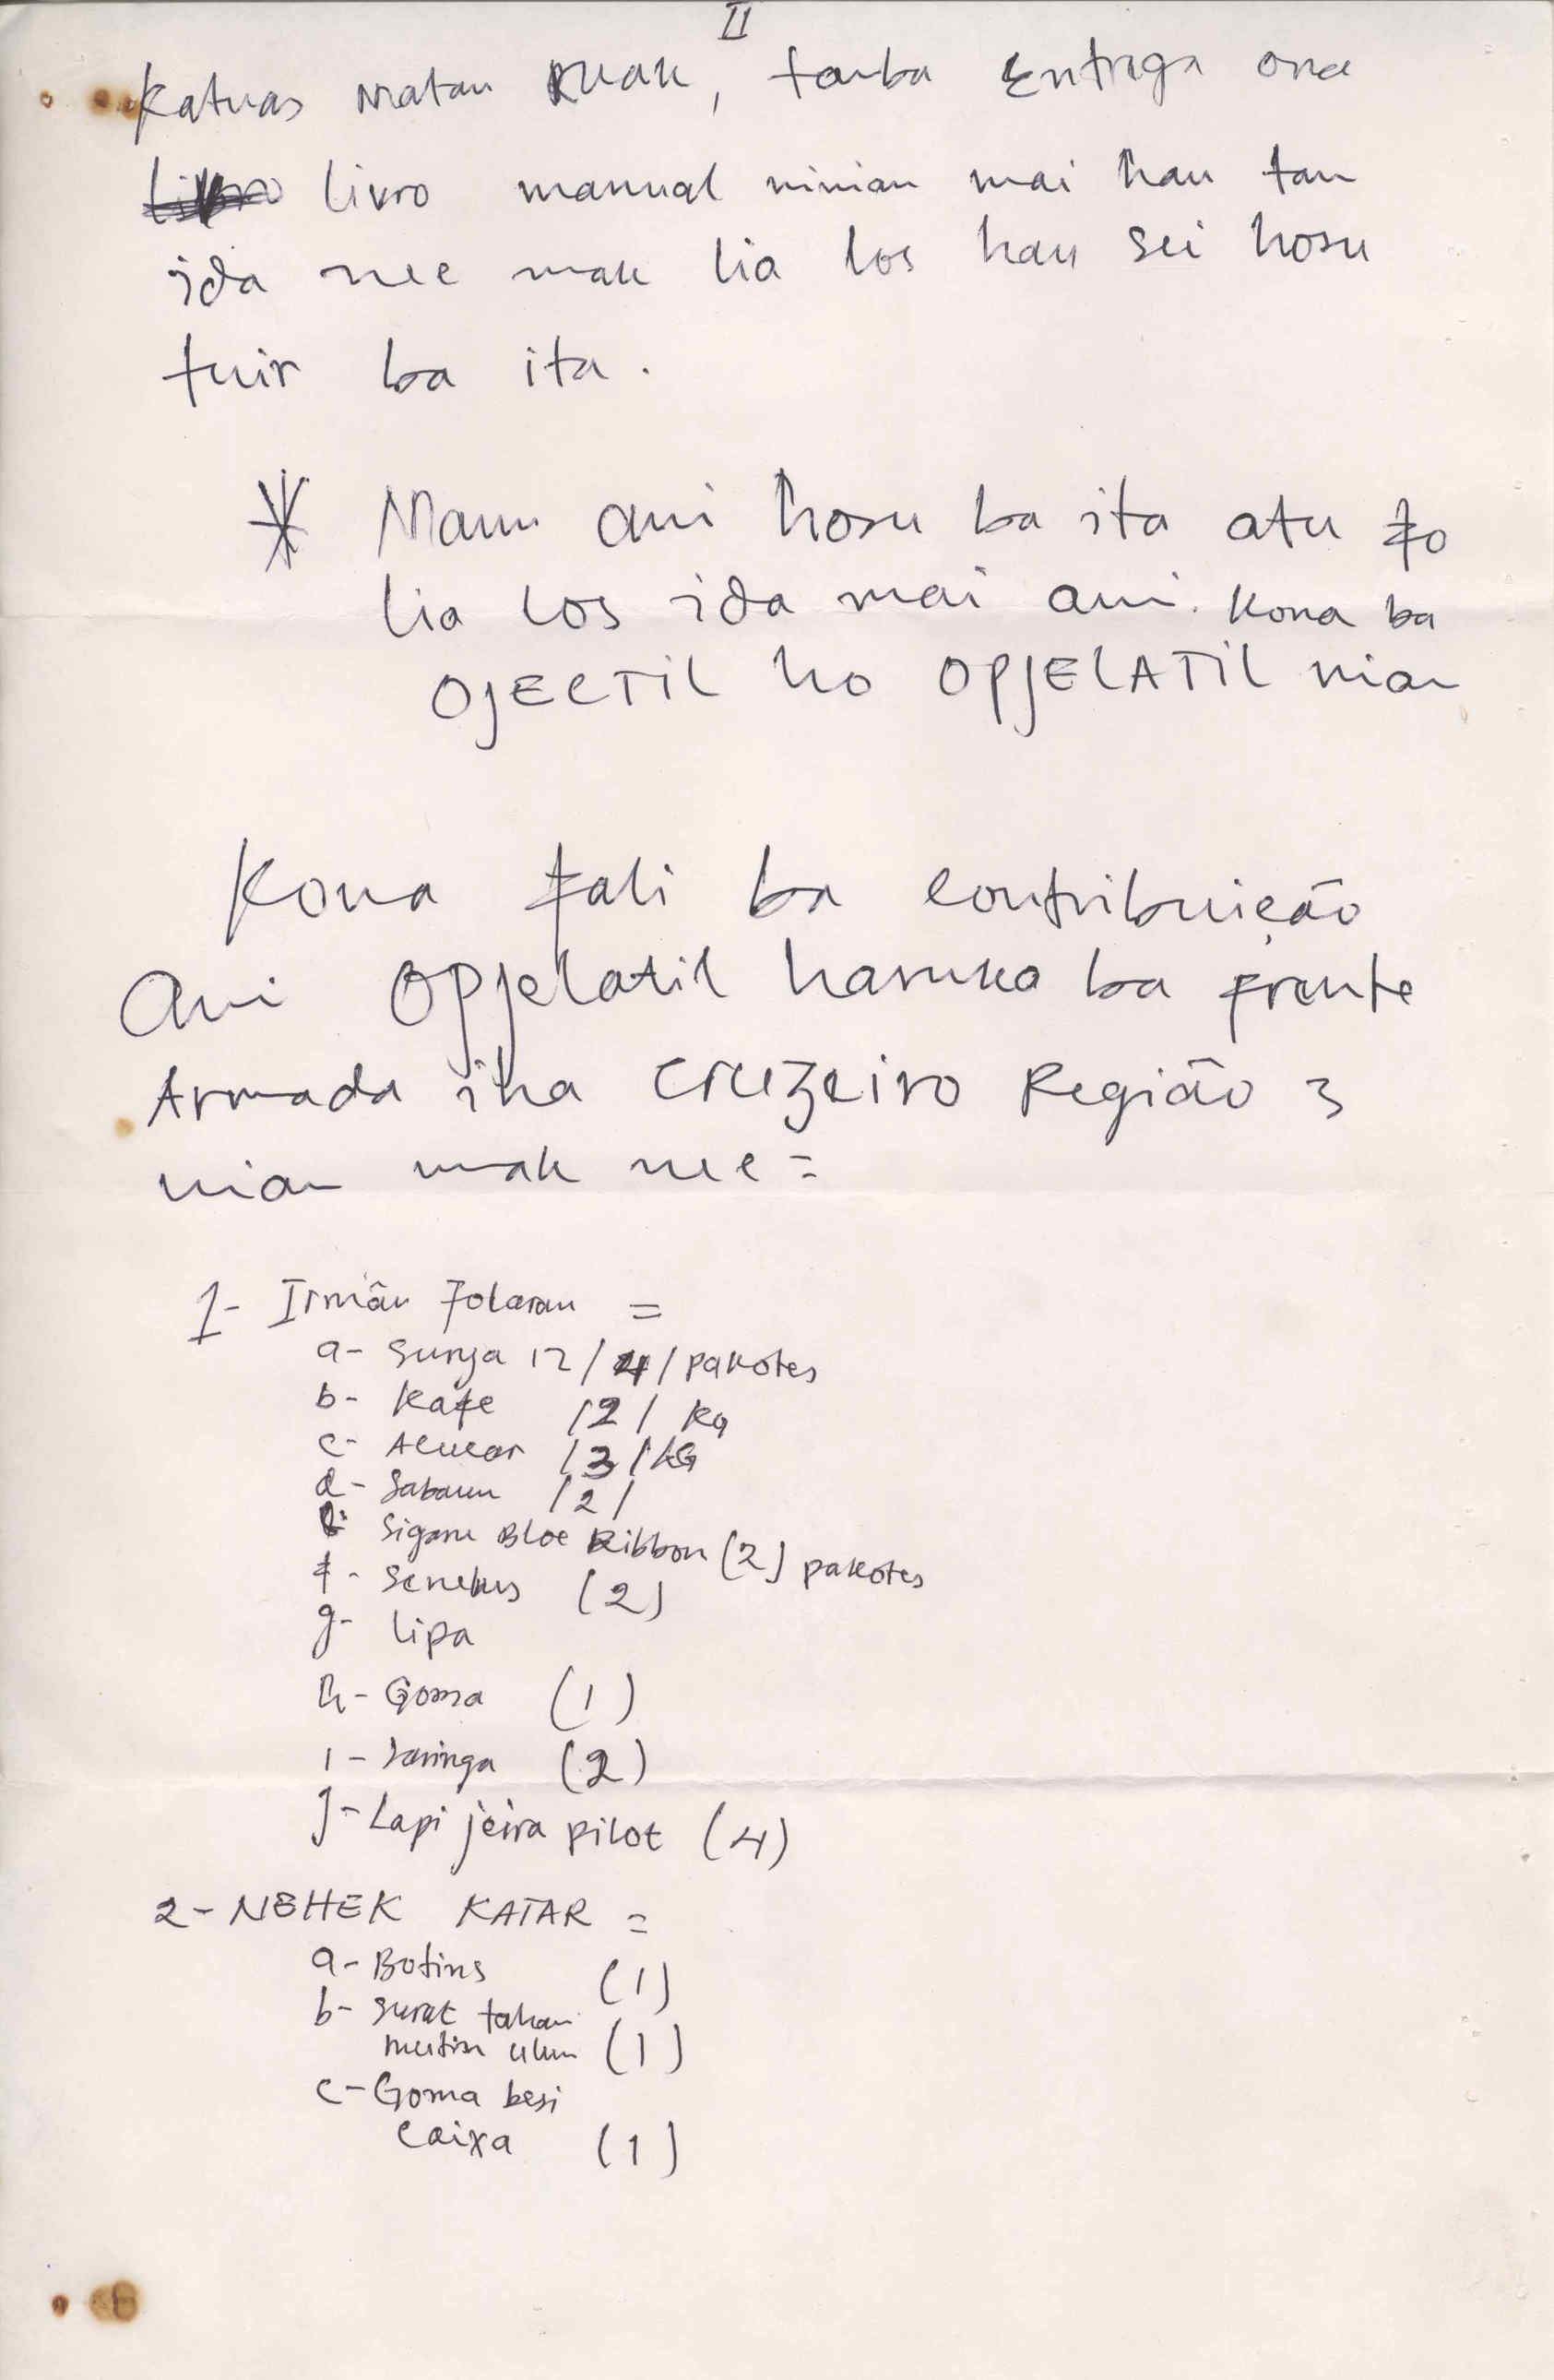 II
Katuas Matan Ruak, tanba Entrega ona
livro manual ninian mai hau tan
ida nee mak lia los hau sei hosu
tuir ba ita.
* Maun ami hosu ba ita atu fo
lia los ida mai ami. Kona ba
OJECTIL ho OPJELATIL nian
Kona fali ba contribuição
Ami Opjelatil haruka ba frente
Armada iha cruzeiro Região 3
nian mak nee =
1- Irmãu Folaran =
a- Surya 12 /4/ pakotes
b- Kafe /2/ Kg
c- Acucar /3/ KG
d- Sabaun /2/
Sigaru Bloe Ribbon (2) pakotes
f- (2)
g- Lipa
h- Goma (1)
i- (2)
J- Lapi jeira pilot (4)
2- NEHEK KATAR =
a- Botins (1)
b- surat tahan
mutin ulun (1)
c- Goma besi
caixa (1)